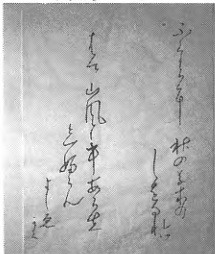 ふくからに 秋の草木の
しをるれは
むへ山風をあらし
といふらん